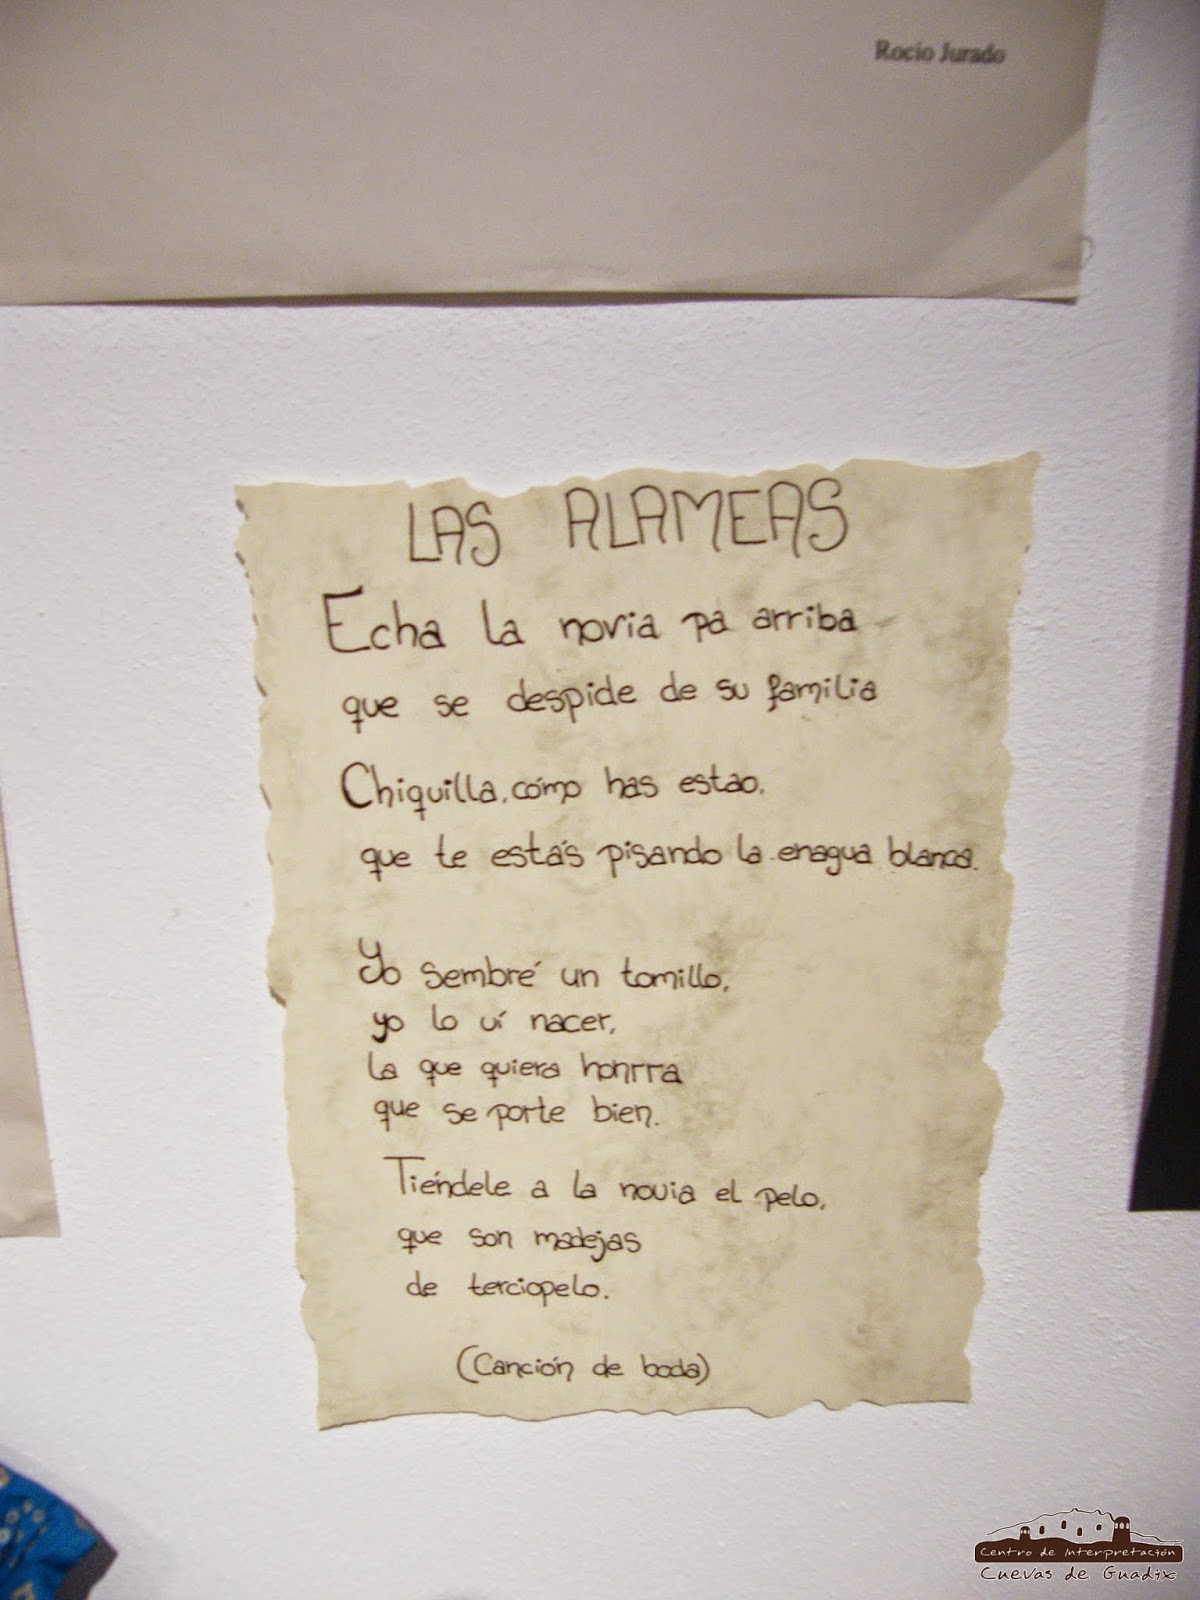 Rocío Jurado
LAS ALAMEAS
Echa la novia pa arriba
que se despide de su familia
Chiquilla, cómo has estao,
que te estás pisando la enagua blanca.
Yo sembré un tomillo,
yo lo ví nacer,
la que quiera honrra
que se porte bien.
Tiéndele a la novia el pelo,
que son madejas
de terciopelo.
(Canción de boda)
Centro de Interpretación
Cuevas de Guadix